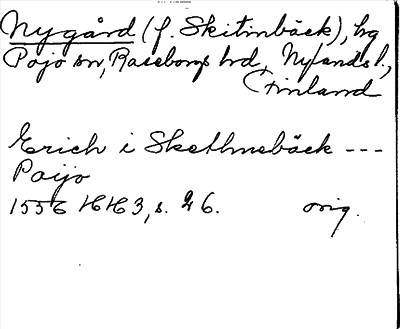 Nygård (f. Skitinbäck), hg
Pojo sn, Raseborgs hd, Nylands l.,
Finland
Erich i Skethnebäck ---
Poijo
1556 HH 3, s. 26. orig.